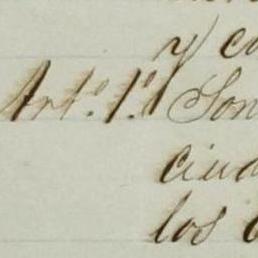 y
Art.º 1.º Son
ciud
los